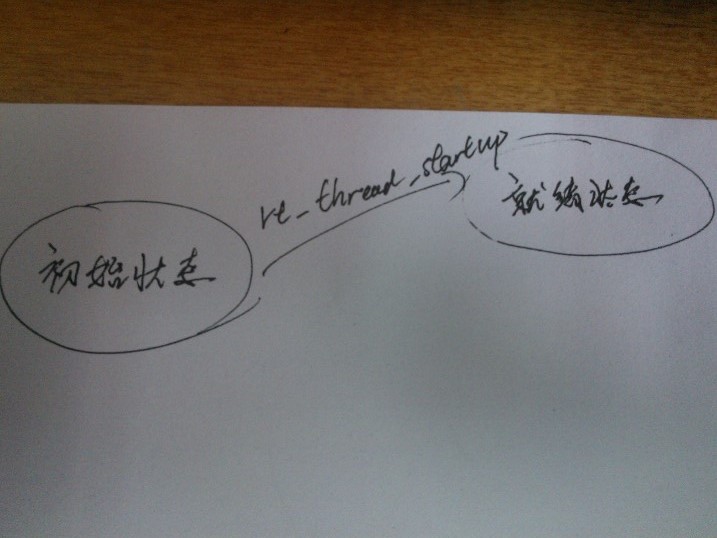 初始状态
rt_thread_startup
就绪状态